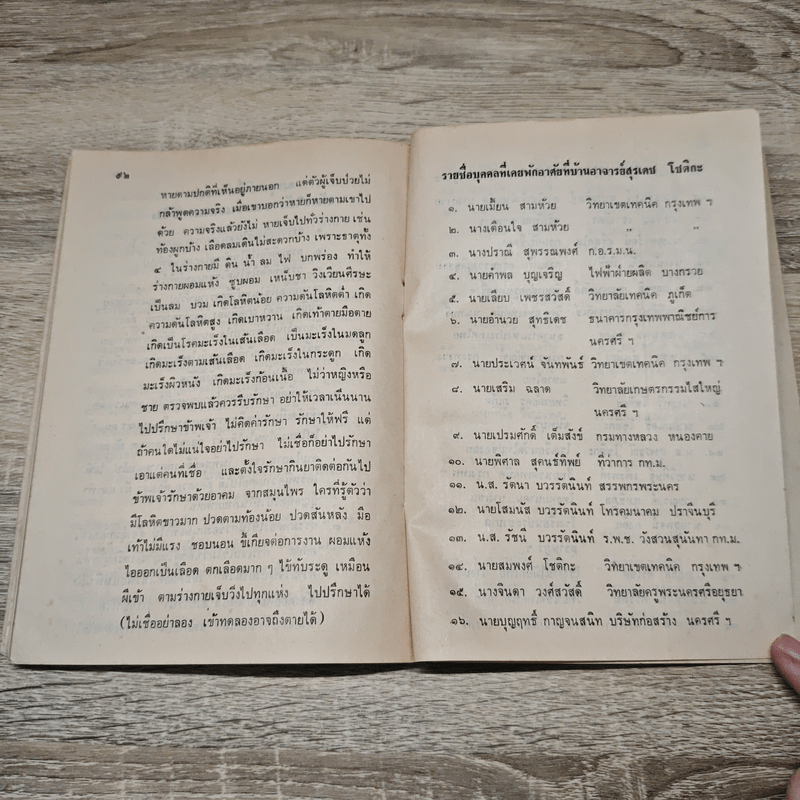 ๙๒
หายตามปกติที่เห็นอยู่ภายนอก แต่ตัวผู้เจ็บป่วยไม่
กล้าพูดความจริง เมื่อเขาบอกว่าหายก็หายตามเขาไป
ด้วย ความจริงแล้วยังไม่ หายเจ็บไปทั่วร่างกาย เช่น
ท้องผูกบ้าง เลือดลมเดินไม่สะดวกบ้าง เพราะธาตุทั้ง
๔ ในร่างกายมี ดิน น้ำ ลม ไฟ บกพร่อง ทำให้
ร่างกายผอมแห้ง ซูบผอม เหน็บชา วิงเวียนศีรษะ
เป็นลม บวม เกิดโลหิตน้อย ความดันโลหิตต่ำ เกิด
ความดันโลหิตสูง เกิดเบาหวาน เกิดเท้าตายมือตาย
เกิดเป็นโรคมะเร็งในเส้นเลือด เป็นมะเร็งในมดลูก
เกิดมะเร็งตามเส้นเลือด เกิดมะเร็งในกระดูก เกิด
มะเร็งผิวหนัง เกิดมะเร็งก้อนเนื้อ ไม่ว่าหญิงหรือ
ชาย ตรวจพบแล้วควรรีบรักษา อย่าให้เวลาเนิ่นนาน
ไปปรึกษาข้าพเจ้า ไม่คิดค่ารักษา รักษาให้ฟรี แต่
ถ้าคนใดไม่แน่ใจอย่าไปรักษา ไม่เชื่อก็อย่าไปรักษา
เอาแต่คนที่เชื่อ และตั้งใจรักษากินยาติดต่อกันไป
ข้าพเจ้ารักษาด้วยอาคม จากสมุนไพร ใครที่รู้ตัวว่า
มีโลหิตขาวมาก ปวดตามท้องน้อย ปวดสันหลัง มือ
เท้าไม่มีแรง ชอบนอน ขี้เกียจต่อการงาน ผอมแห้ง
ไอออกเป็นเลือด ตกเลือดมาก ๆ ไข้ทับระดู เหมือน
ผีเข้า ตามร่างกายเจ็บวิ่งไปทุกแห่ง ไปปรึกษาได้
(ไม่เชื่ออย่าลอง เข้าทดลองอาจถึงตายได้)
รายชื่อบุคคลที่เคยพักอาศัยที่บ้านอาจารย์สุรเดช โชติกะ
๑. นายเมี้ยน สามห้วย วิทยาเขตเทคนิค กรุงเทพ ฯ
๒. นางเตือนใจ สามห้วย " "
๓. นางปราณี สุพรรณพงศ์ ก.อ.ร.ม.น.
๔. นายคำพล บุญเจริญ ไฟฟ้าฝ่ายผลิต บางกรวย
๕. นายเลียบ เพชรสวัสดิ์ วิทยาลัยเทคนิค ภูเก็ต
๖. นายอำนวย สุทธิเดช ธนาคารกรุงเทพพาณิชย์การ
นครศรี ฯ
๗. นายประเวศน์ จันทพันธ์ วิทยาเขตเทคนิค กรุงเทพ ฯ
๘. นายเสริม ฉลาด วิทยาลัยเกษตรกรรมไสใหญ่
นครศรี ฯ
๙. นายเปรมศักดิ์ เต็มสังข์ กรมทางหลวง หนองคาย
๑๐. นายพิศาล สุคนธ์ทิพย์ ที่ว่าการ กท.ม.
๑๑. น.ส. รัตนา บวรรัตนินท์ สรรพกรพระนคร
๑๒. นายโสมนัส บวรรัตนินท์ โทรคมนาคม ปราจีนบุรี
๑๓. น.ส. รัชนี บวรรัตนินท์ ร.พ.ช. วังสวนสุนันทา กท.ม.
๑๔. นายสมพงศ์ โชติกะ วิทยาเขตเทคนิค กรุงเทพ ฯ
๑๕. นางจินดา วงศ์สวัสดิ์ วิทยาลัยครูพระนครศรีอยุธยา
๑๖. นายบุญฤทธิ์ กาญจนสนิท บริษัทก่อสร้าง นครศรี ฯ